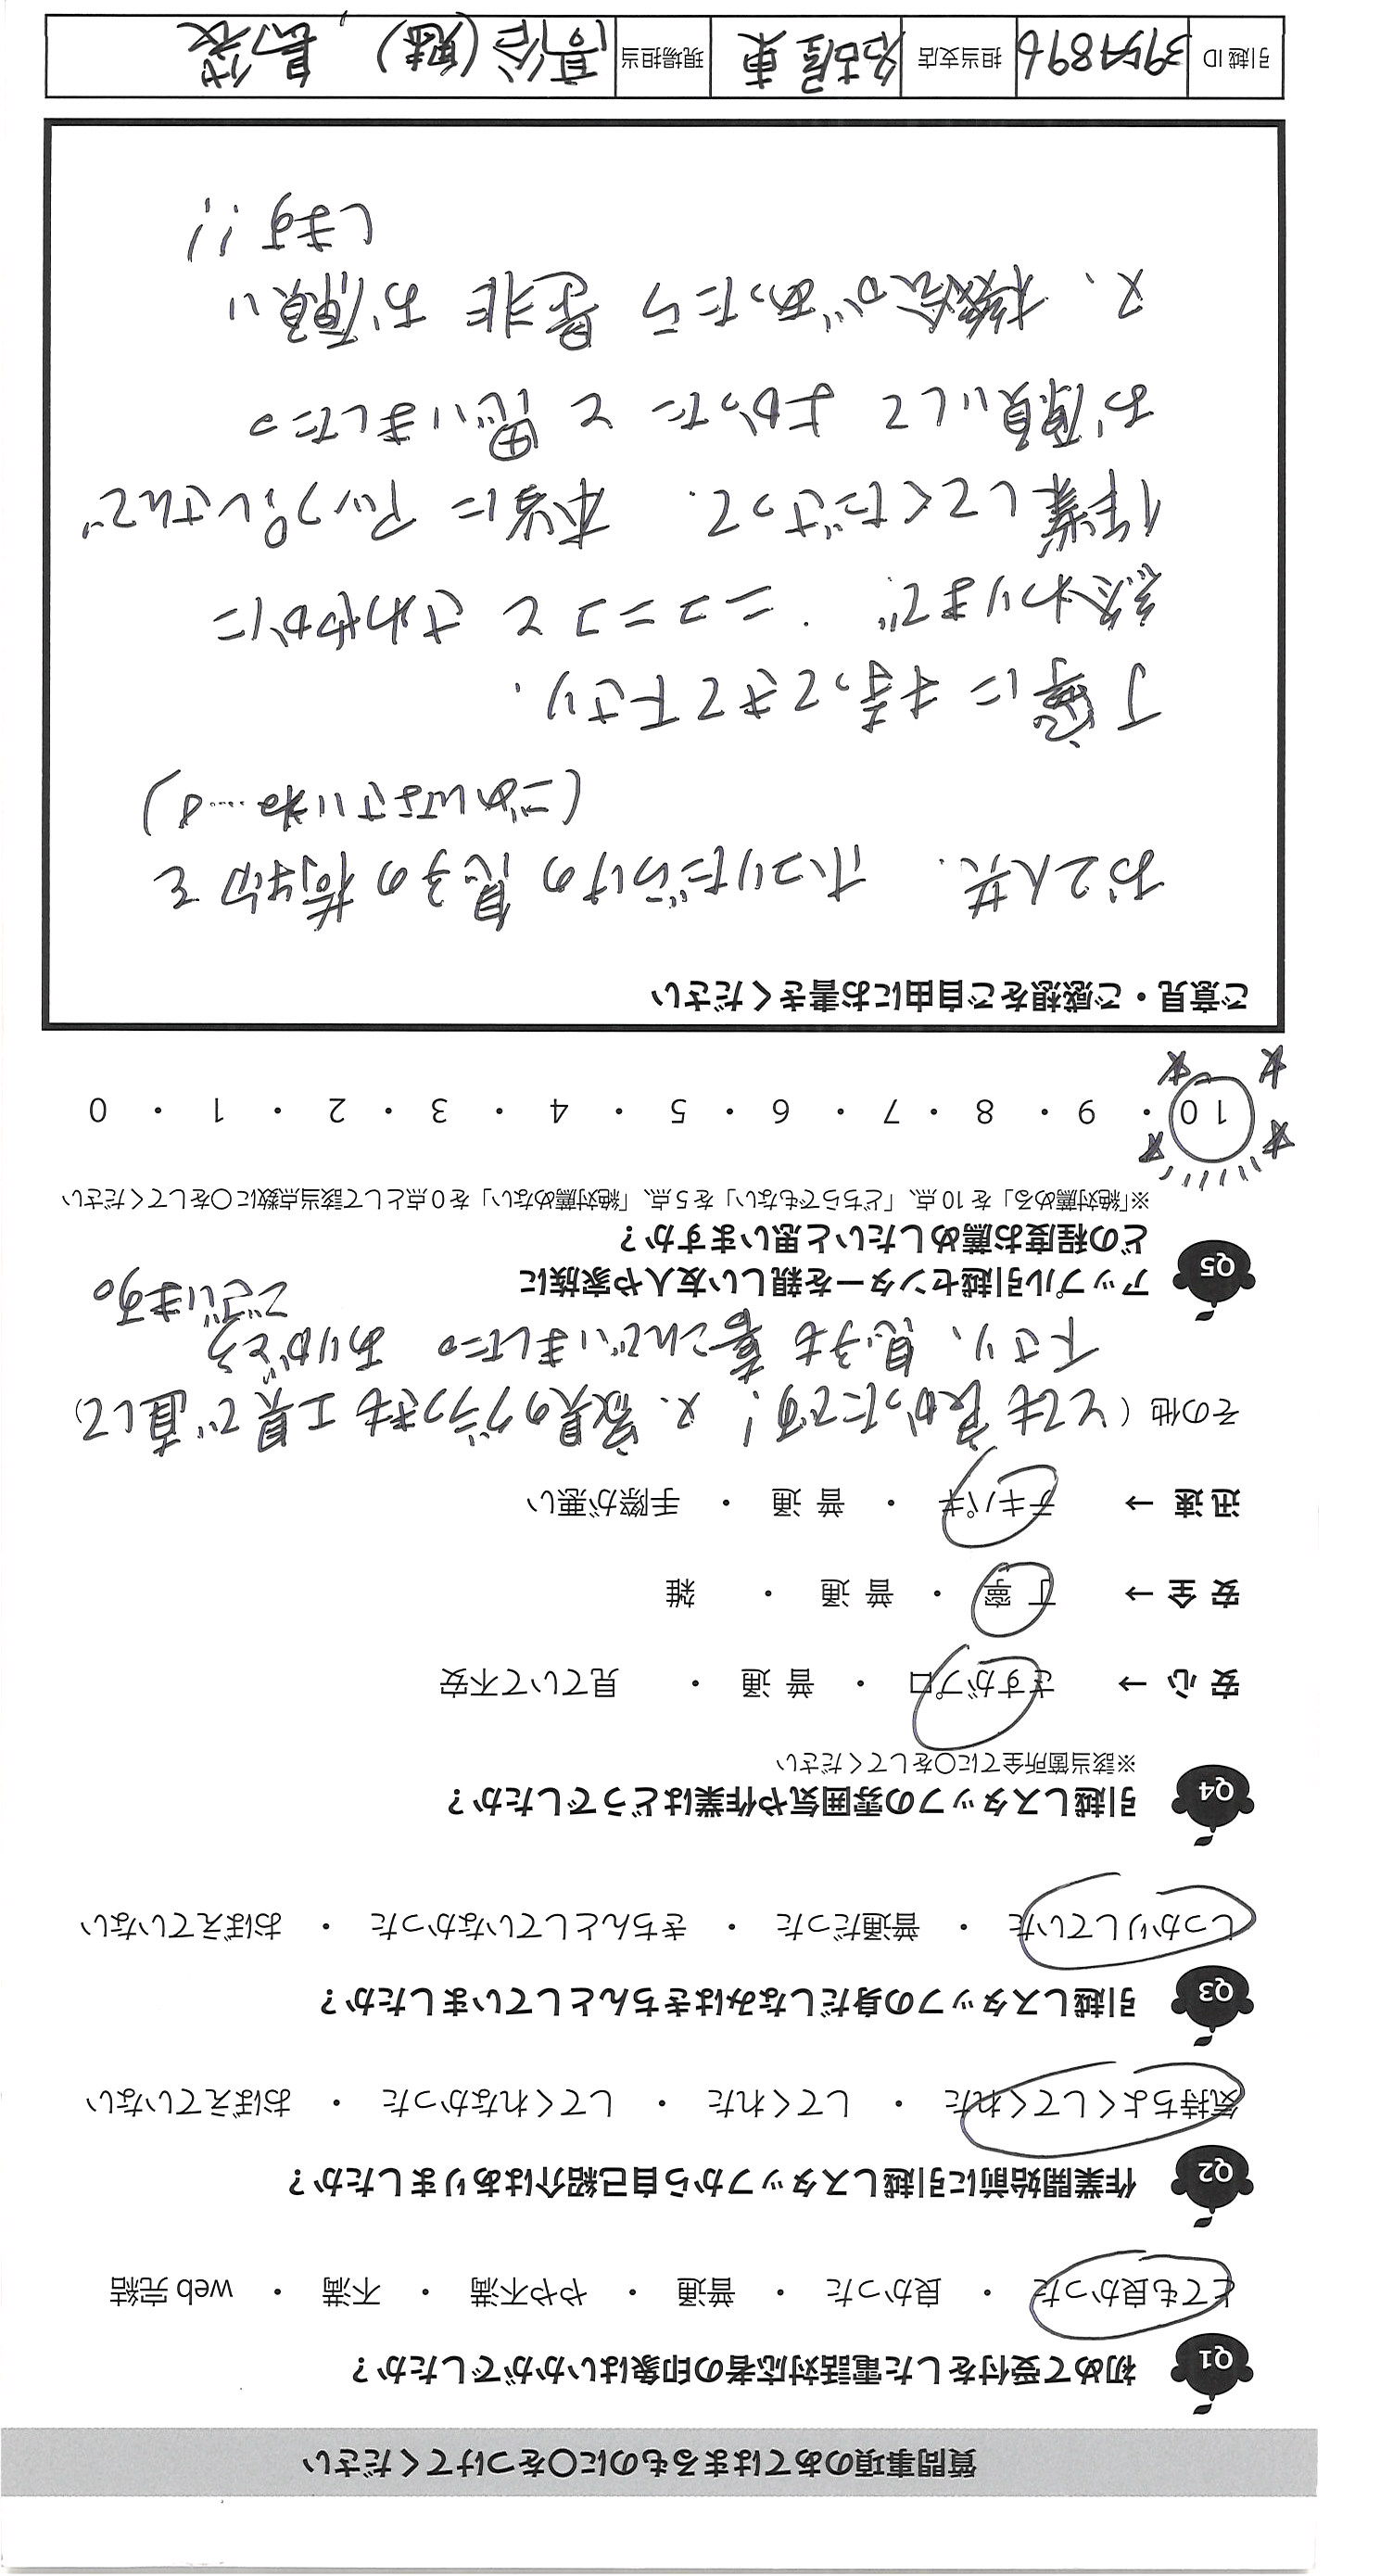 質問事項のあてはまるものに〇をつけてください
Q1 初めて受付をした電話対応者の印象はいかがでしたか？
とても良かった ・ 良かった ・ 普通 ・ やや不満 ・ 不満 ・ web 完結
Q2 作業開始前に引越しスタッフから自己紹介はありましたか？
気持ちよくしてくれた ・ してくれた ・ してくれなかった ・ おぼえていない
Q3 引越しスタッフの身だしなみはきちんとしていましたか？
しっかりしていた ・ 普通だった ・ きちんとしていなかった ・ おぼえていない
Q4 引越しスタッフの雰囲気や作業はどうでしたか？
※該当箇所全てに〇をしてください
安 心 → さすがプロ ・ 普 通 ・ 見ていて不安
安 全 → 丁 寧 ・ 普 通 ・ 雑
迅 速 → テキパキ ・ 普 通 ・ 手際が悪い
その他（とても良かったです! 又、家具のグラつきも工具で直して）
下さり、息子も喜こんでいました。 ありがとう
ございます。
Q5 アップル引越センターを親しい友人や家族に
どの程度お薦めしたいと思いますか？
※「絶対薦める」を 10 点、「どちらでもない」を 5 点、「絶対薦めない」を 0 点として該当点数に〇をしてください
10 ・ 9 ・ 8 ・ 7 ・ 6 ・ 5 ・ 4 ・ 3 ・ 2 ・ 1 ・ 0
ご意見・ご感想をご自由にお書きください
お2人共、ホコリだらけの息子の荷物を
(ごめんなさいね…。)
丁寧に持ってきて下さり、
終わりまで、ニコニコとさわやかに
作業してくださって、本当にアップルさんで
お願いして よかった と 思いました。
又、機会があったら 是非 お願い
します!!
引越 ID 3959896 担当支店 名古屋東 現場担当 高谷(魁)、島袋